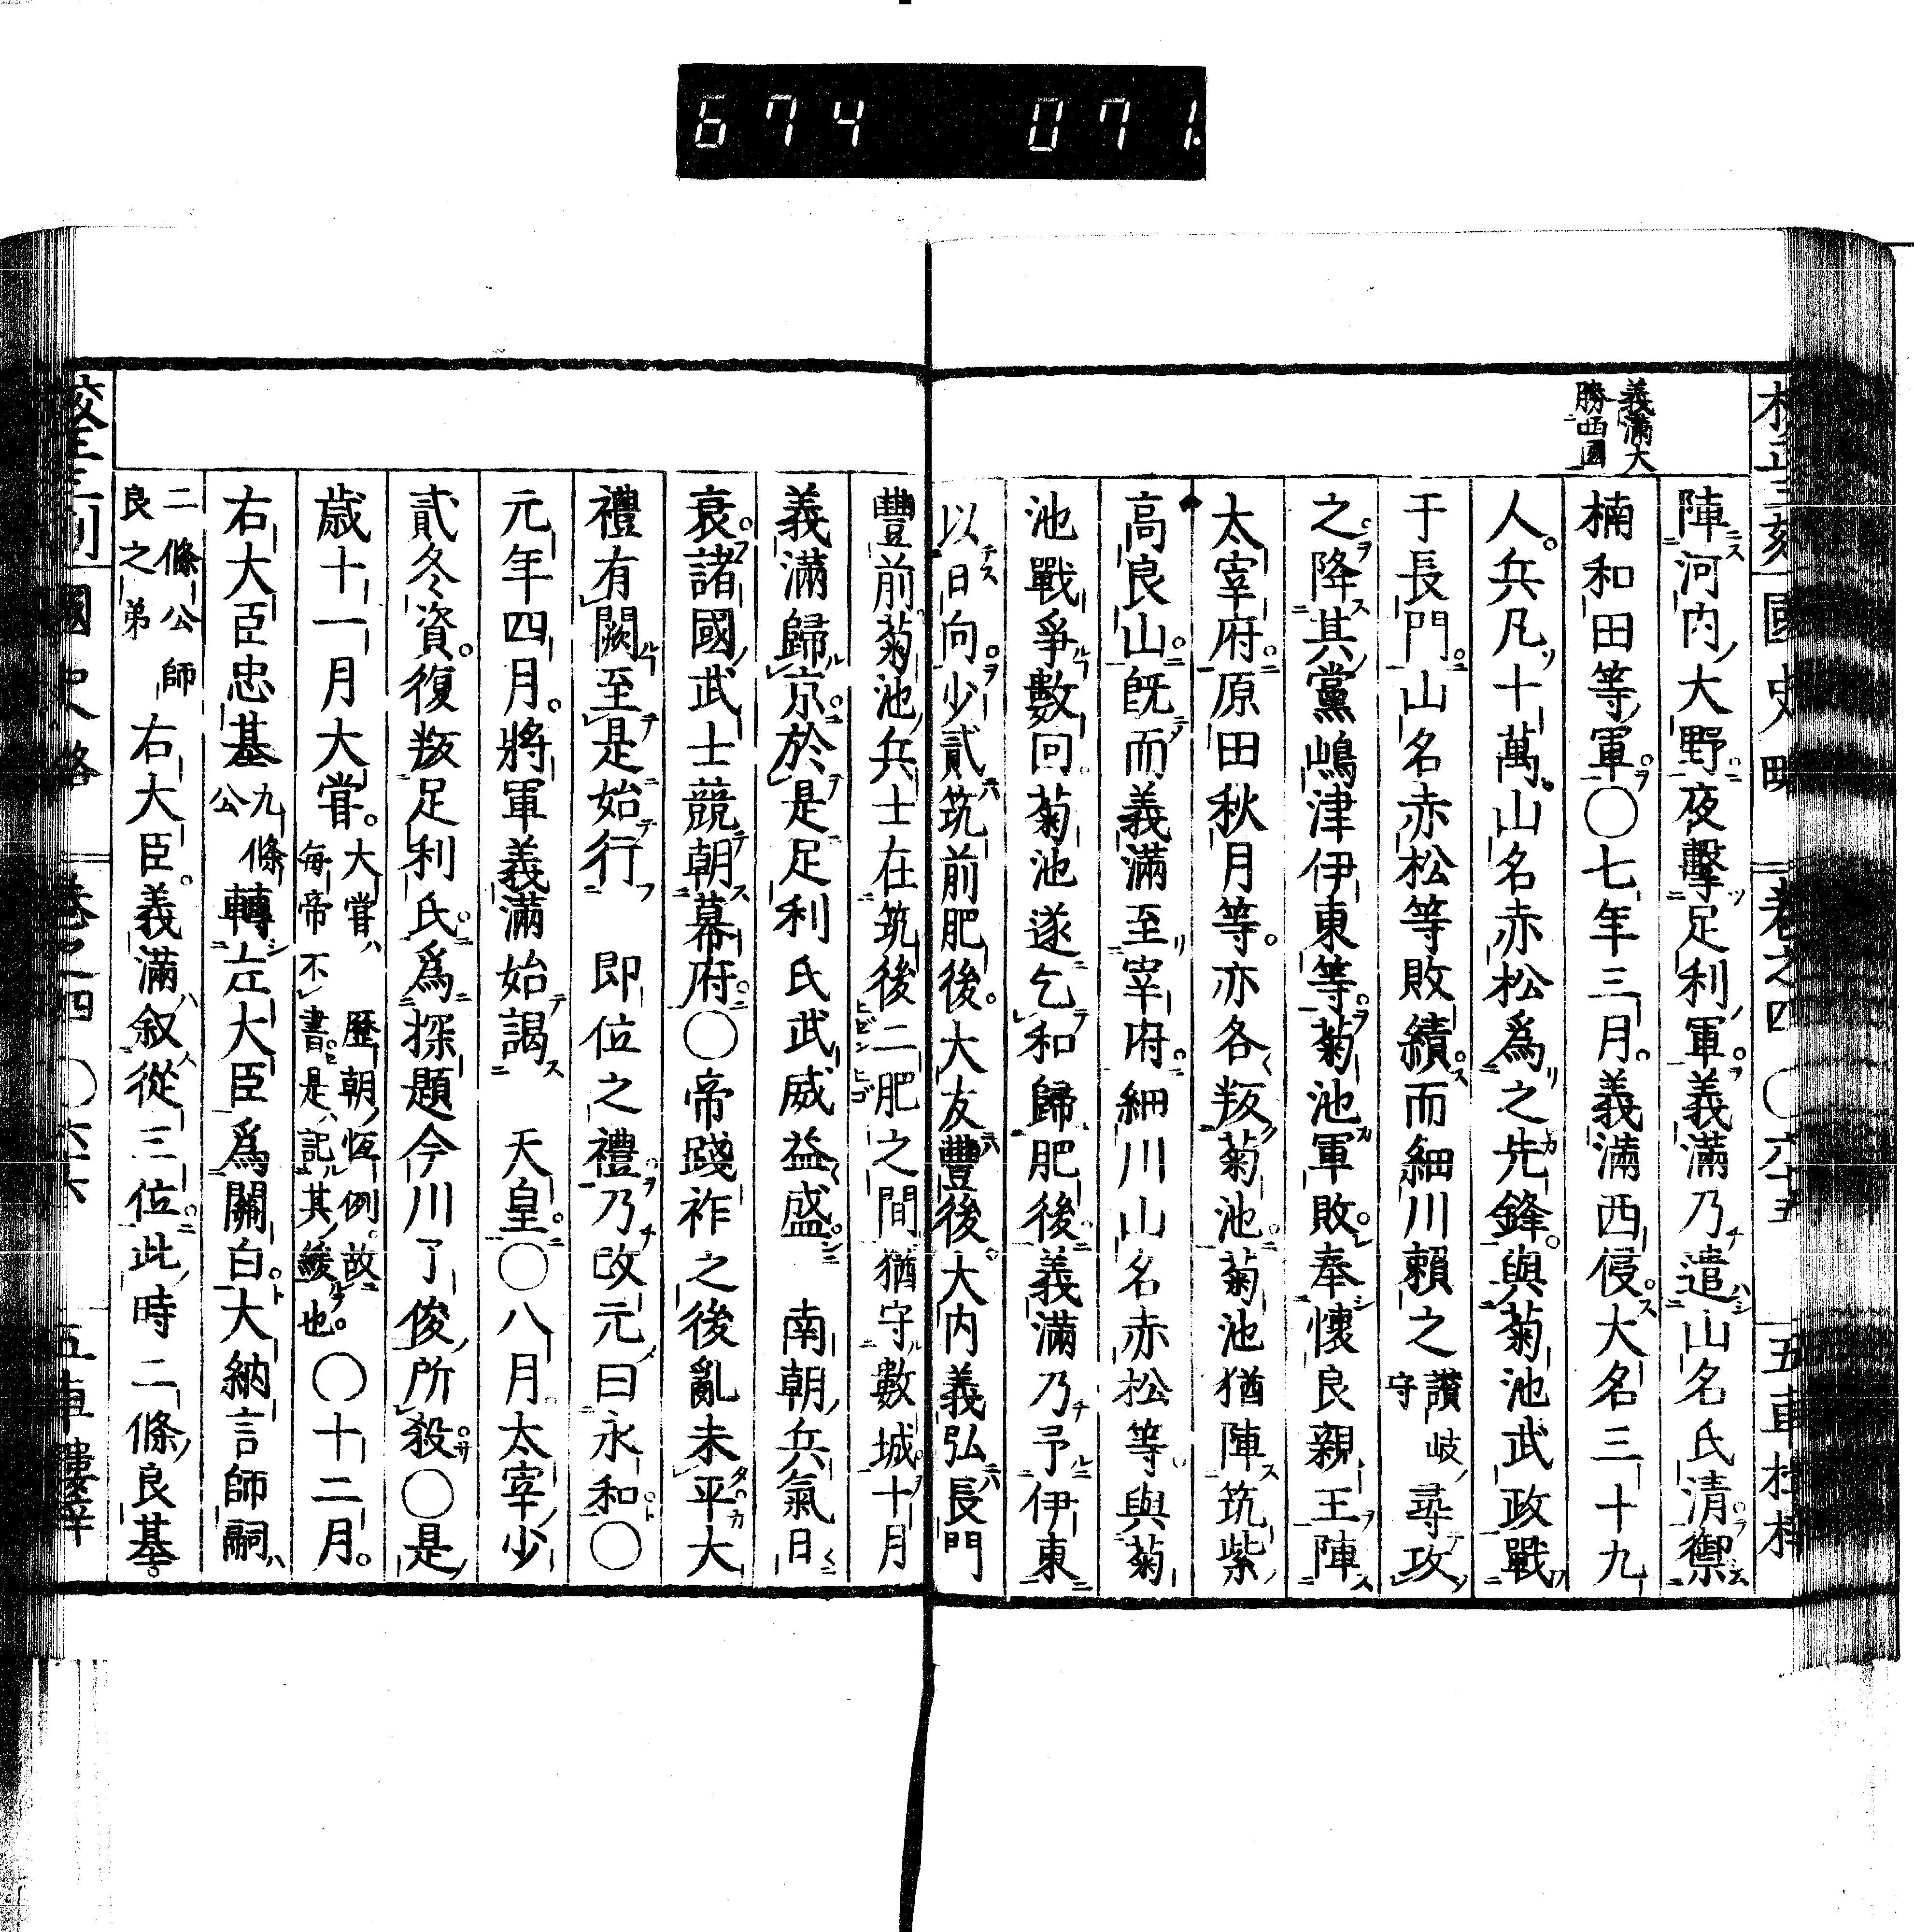 674 071
校正三刻國史略 卷之四 〇六十五 五車樓梓
義滿大
勝西國
陣河内大野夜擊足利軍義滿乃遣山名氏清禦
楠和田等軍〇七年三月義滿西侵大名三十九
人兵凡十萬山名赤松爲之先鋒與菊池武政戰
于長門山名赤松等敗績而細川賴之讃岐守尋攻
之降其黨嶋津伊東等菊池軍敗奉懷良親王陣
太宰府原田秋月等亦各叛菊池菊池猶陣筑紫
高良山既而義滿至宰府細川山名赤松等與菊
池戰爭數回菊池遂乞和歸肥後義滿乃予伊東
以日向少貳筑前肥後大友豐後大内義弘長門
豐前菊池兵士在筑後二肥之間猶守數城十月
義滿歸京於是足利氏武威益盛 南朝兵氣日
衰諸國武士競朝幕府〇帝踐祚之後亂未平大
禮有闕至是始行 即位之禮乃改元曰永和〇
元年四月將軍義滿始謁 天皇〇八月太宰少
貳冬資復叛足利氏爲探題今川了俊所殺〇是
歲十一月大甞。大甞歷朝恆例故每帝不書是記其緩也。〇十二月。
右大臣忠基九條公轉左大臣爲關白大納言師嗣
二條公師良之弟右大臣。義滿叙從三位此時二條良基。
校正三刻國史略 卷之四 〇六十六 五車樓梓